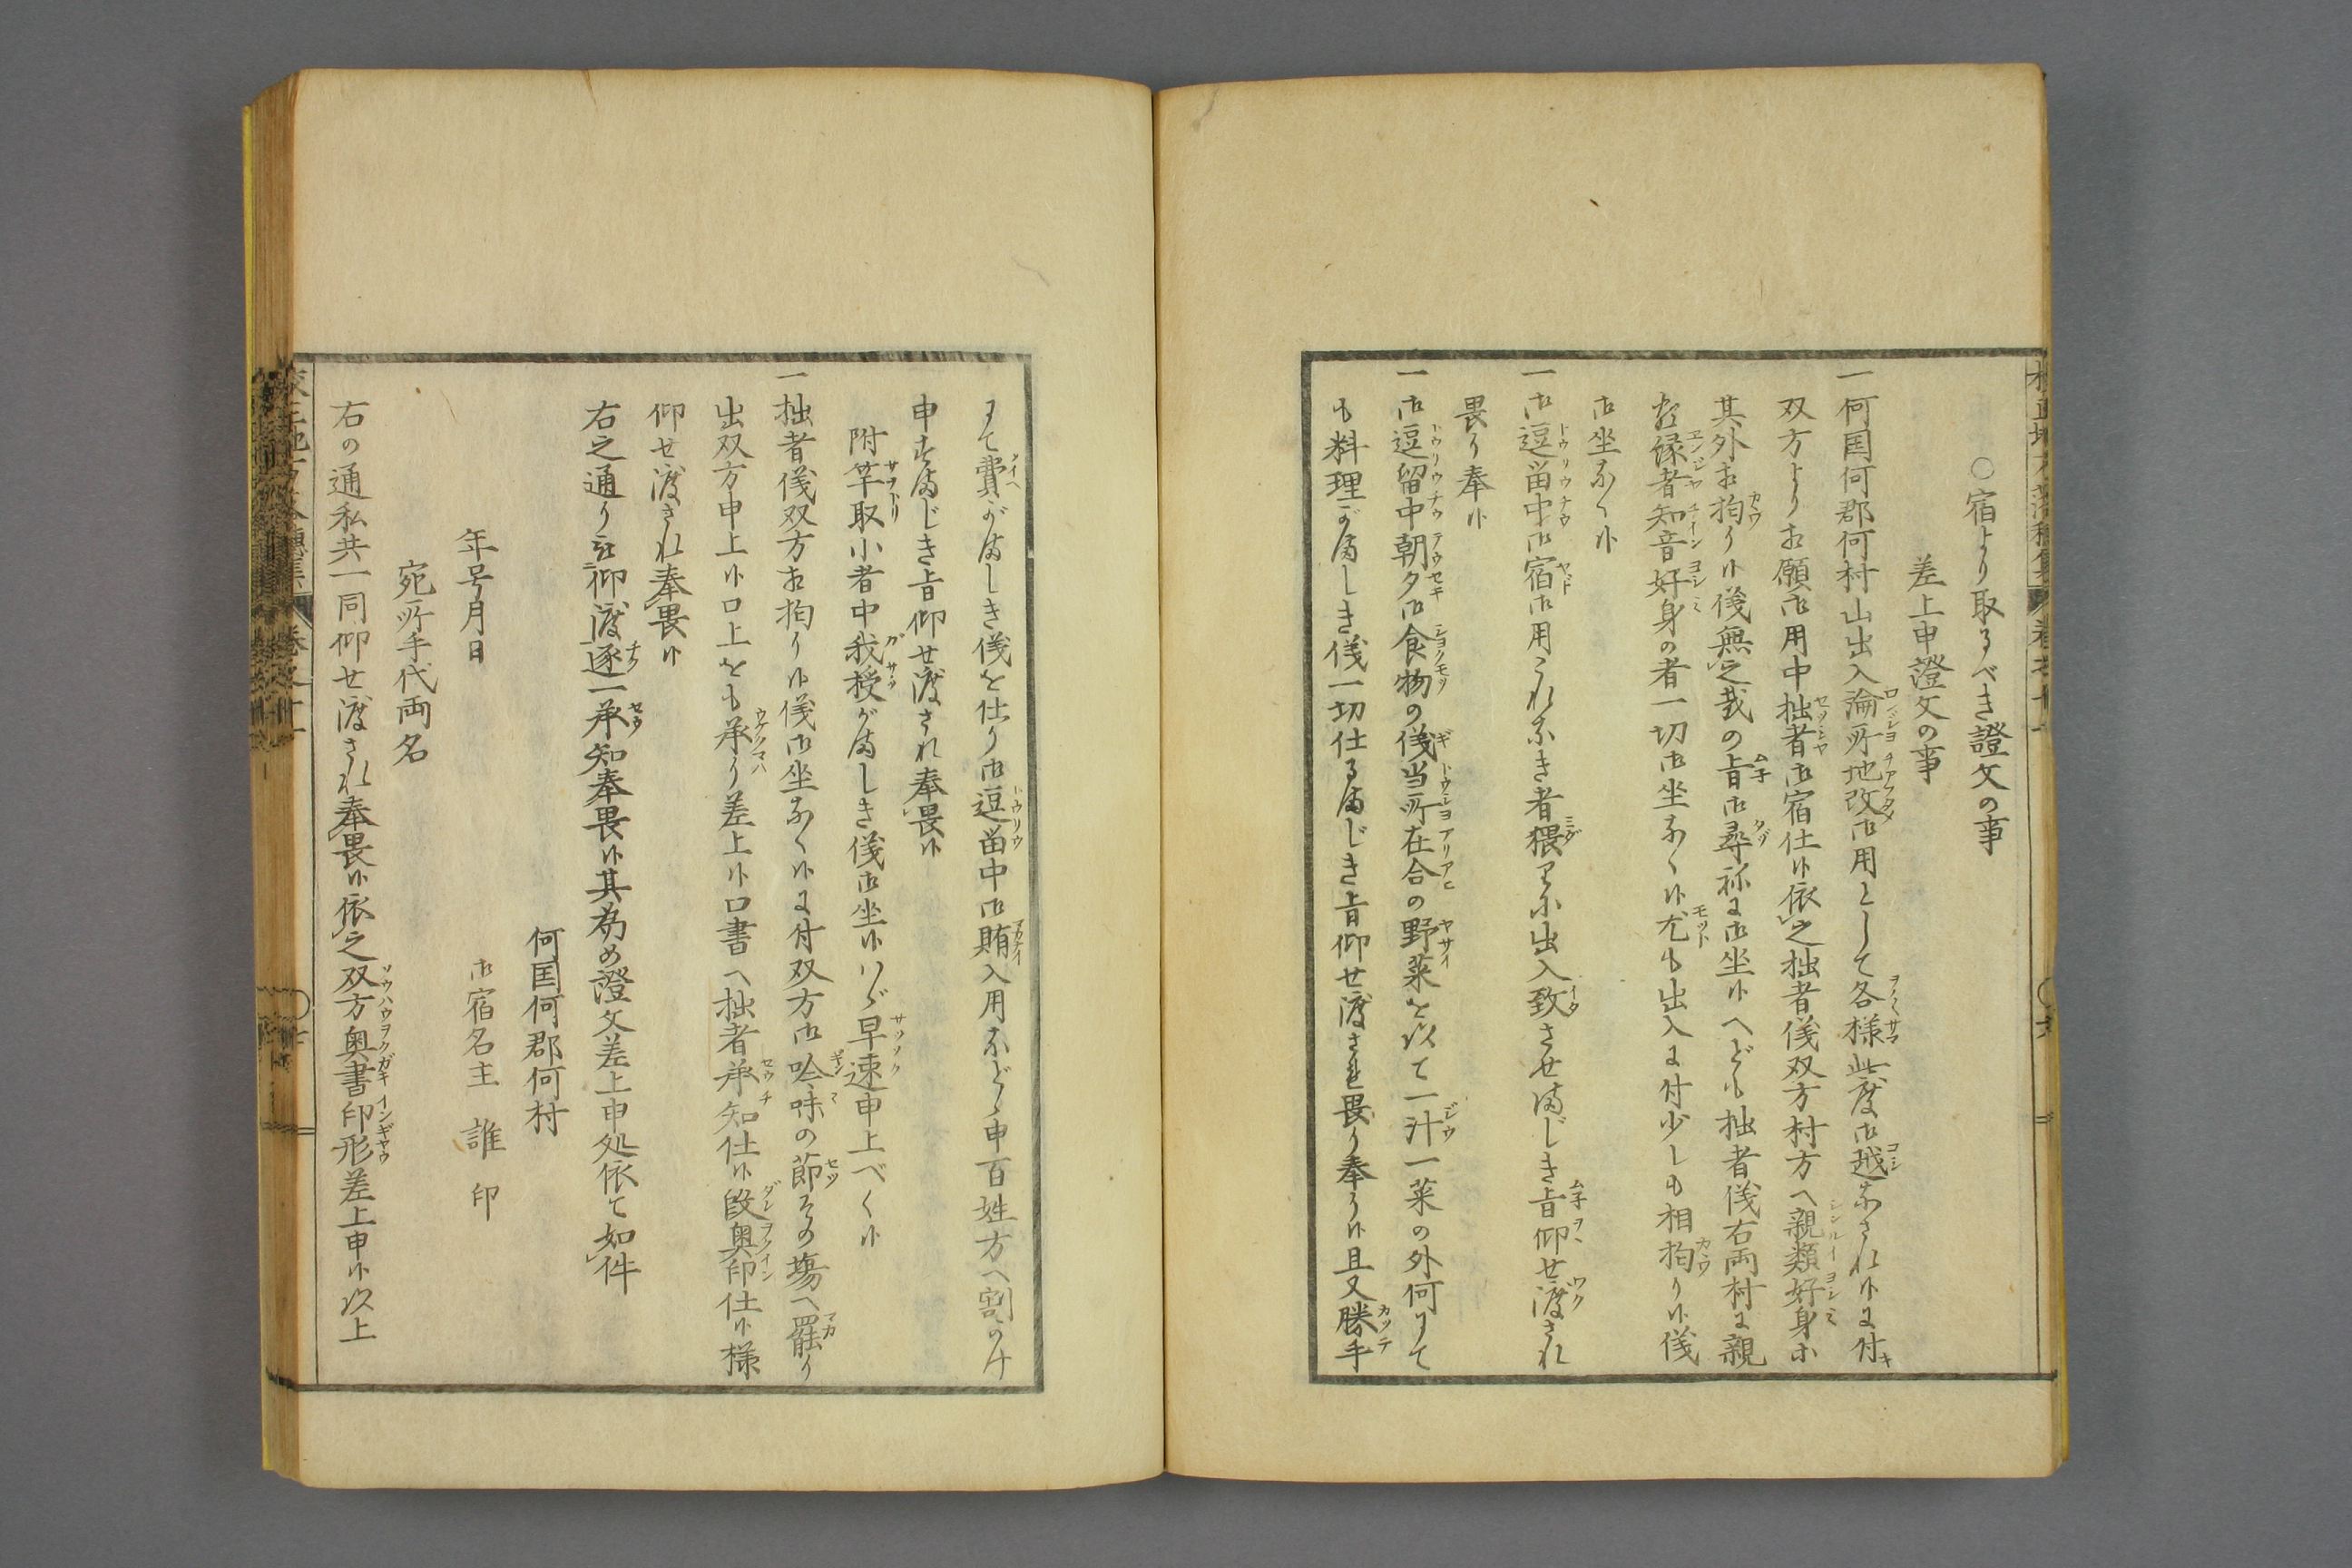 ○宿より取るべき證文の事
差上申證文の事
一何国何郡何村山出入論所地改御用として各様此度御越なされ候に付
双方よりお願御用中拙者御宿仕候依之拙者儀双方村方へ親類好身等
其外お拘り候儀無之哉の旨御尋祢に御坐候へども拙者儀右両村に親
類縁者知音好身の者一切御坐なく候尤も出入に付少しも相拘り候儀
御坐なく候
一御逗留中御宿御用これなき者猥りに出入致させまじき旨仰せ渡され
畏り奉候
一御逗留中朝夕御食物の儀当所在合の野菜を以て一汁一菜の外何にて
も料理がましき儀一切仕るまじき旨仰せ渡され畏り奉り候且又勝手
にて費がましき儀を仕り御逗留中御賄入用などゝ申百姓方へ割かけ
申すまじき旨仰せ渡され奉畏候
附竿取小者中我授がましき儀御坐候ハゞ早速申上べく候
一拙者儀双方お拘り候儀御坐なく候に付双方御吟味の節その場へ罷り
出双方申上候口上をも承り差上候口書へ拙者承知仕候段奥印仕候様
仰せ渡され奉畏候
右之通り被仰渡逐一承知奉畏候其為め證文差上申処依て如件
何国何郡何村
年号月日
御宿名主 誰 印
宛所手代両名
右の通私共一同仰せ渡され奉畏候依之双方奥書印形差上申候以上